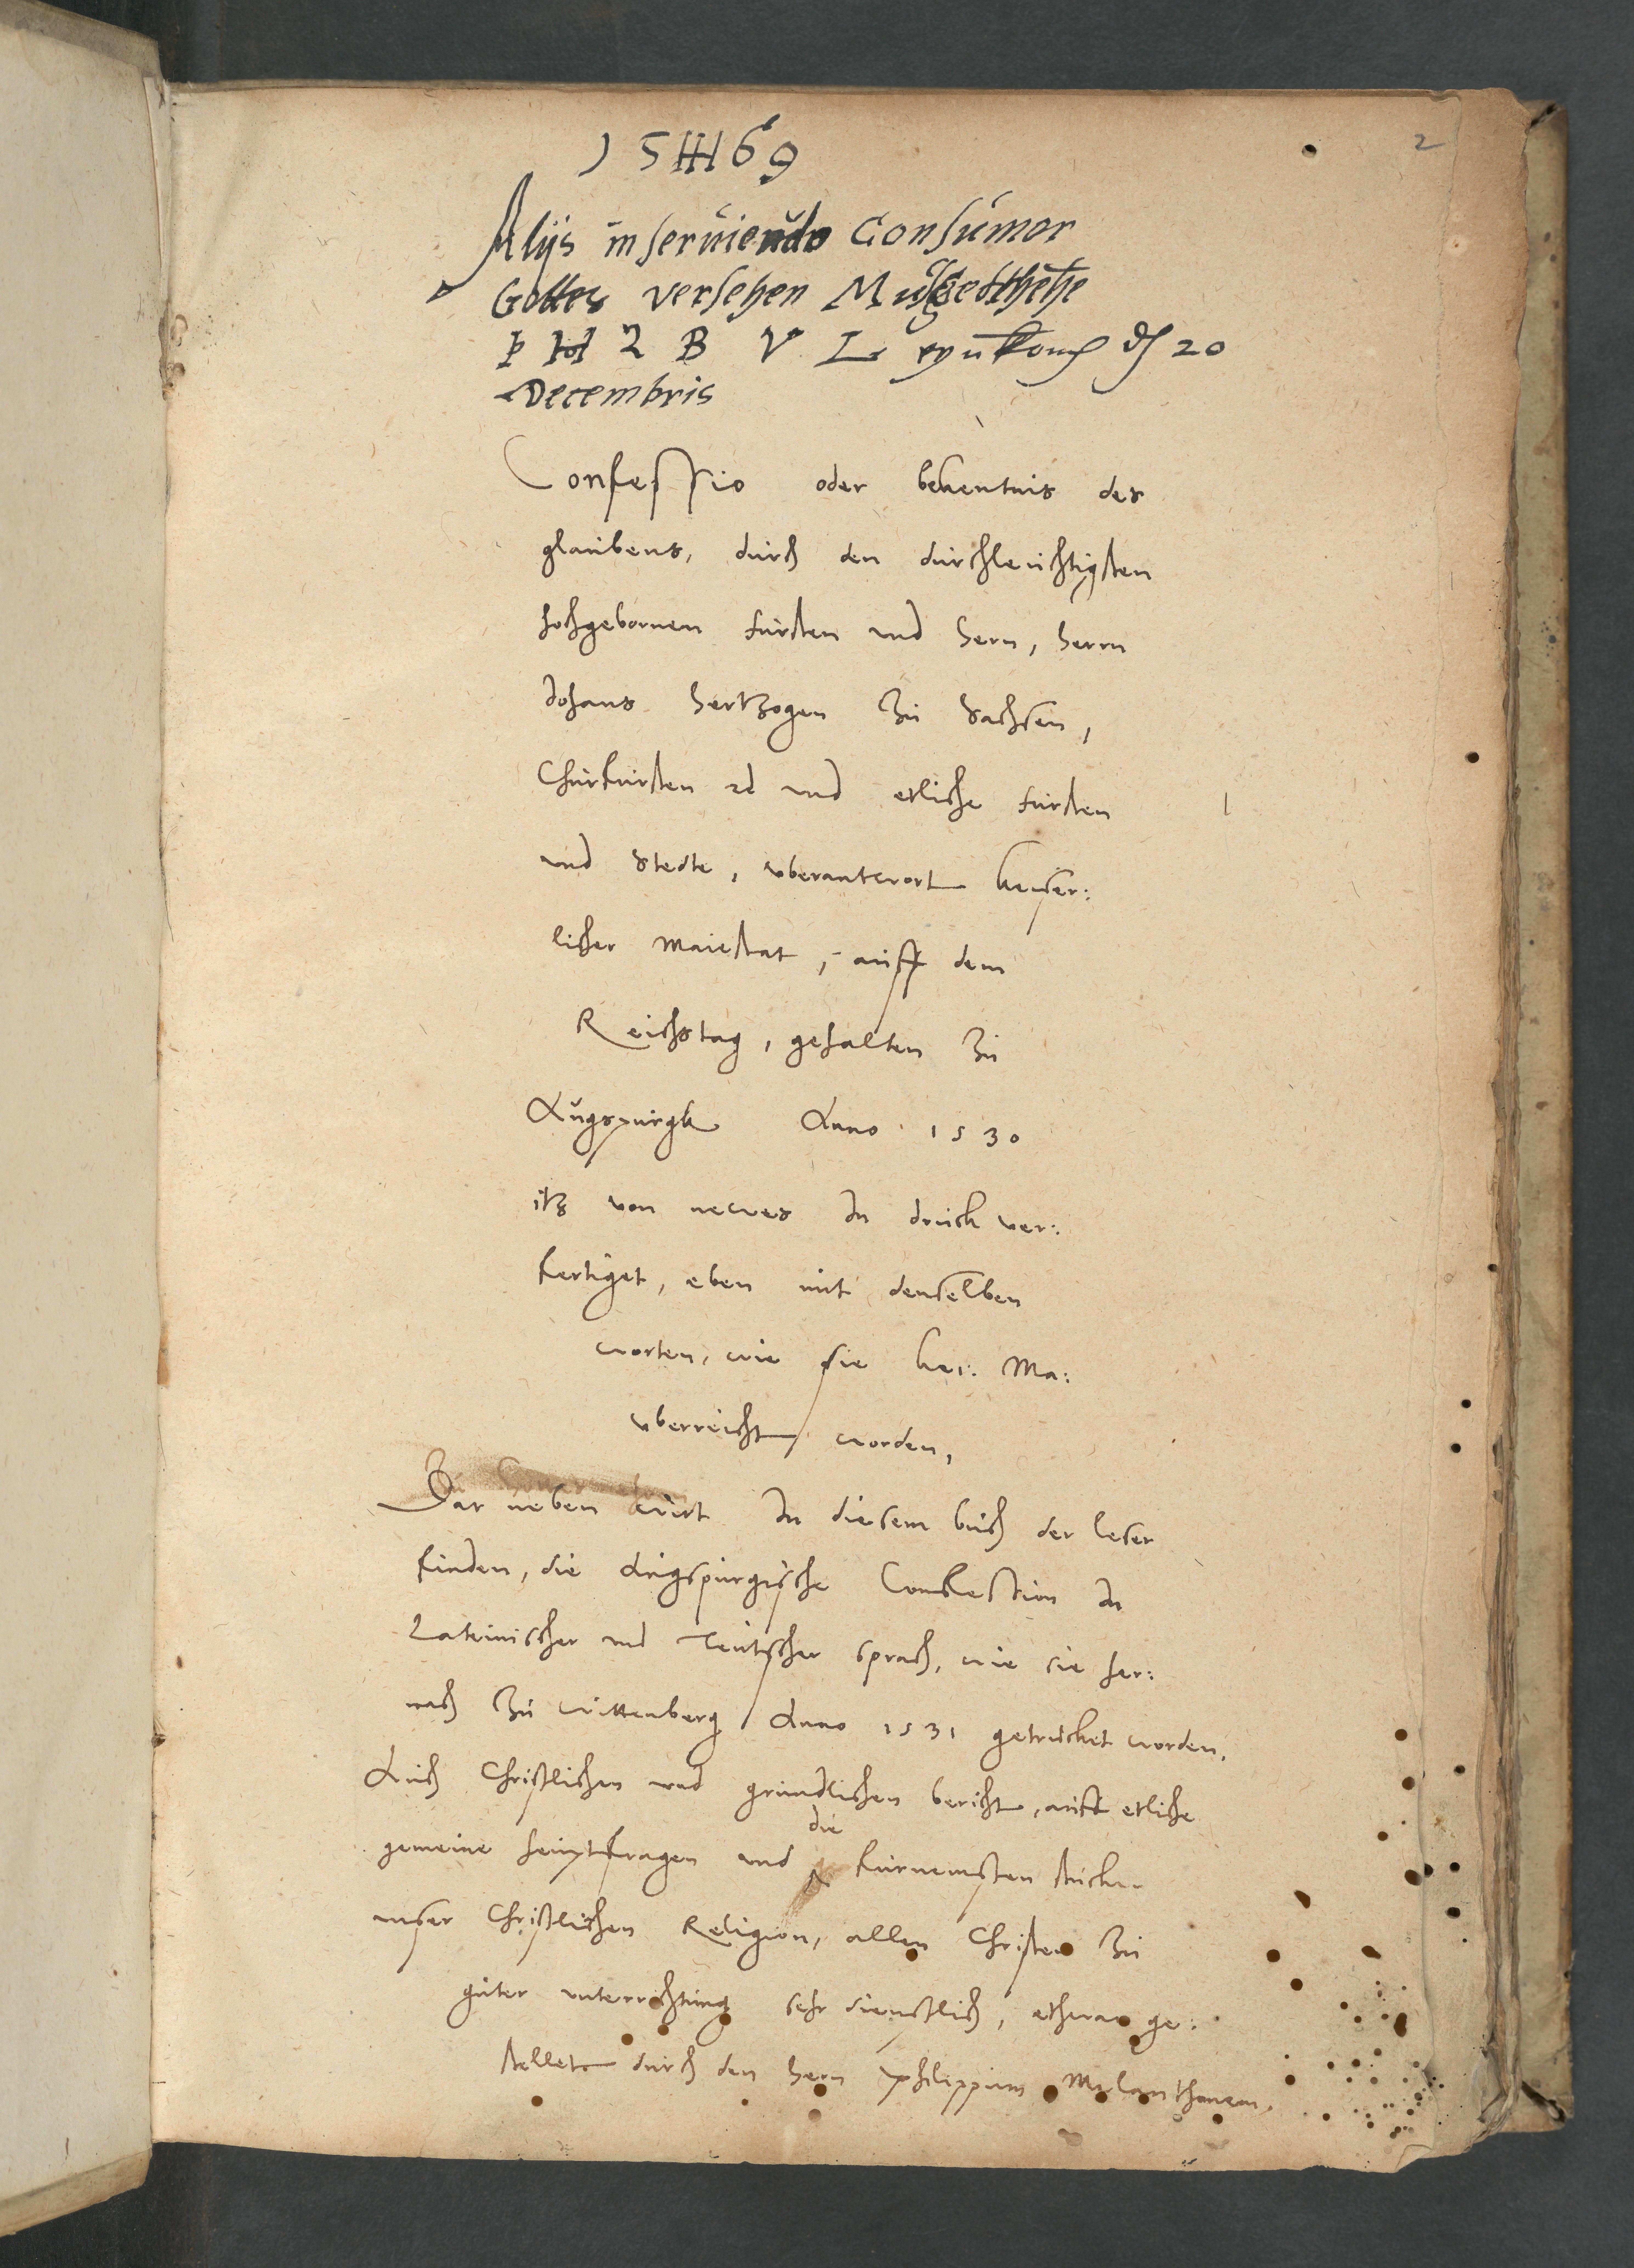 2
15 H 69
Alijs inserüiendo Consümor
Gottes versehen Müs geschehe
P H Z B V L den 20
Decembris
Confessio oder bekentnis des
glaubens, durch den durchleuchtigsten
hochgebornen fursten vnd hern, herrn
Johans hertzogen zu Sachsen,
Churfursten ꝛc vnd etliche fursten
vnd Stedte, vberantwort keiser:
licher Maiestat, auff dem
Reichstag, gehalten zu
Augspurgk Anno 1530
itz von newes In druck ver:
fertiget, eben mit denselben
worten, wie sie kei: Ma:
vberreicht worden,
Dar neben wirt In diesem buch der leser
finden, die Augspurgische Confession In
Lateinischer vnd Teutscher sprach, wie sie her:
nach zu wittenberg Anno 1531 getrucket worden,
Auch Christlichen vnd grundlichen bericht, auff etliche
die
gemeine heuptfragen vnd furnemsten stucke
vnser Christlichen Religion, allen Christen zu
guter unterrichtung sehr dienstlich, etwan ge:
stellet durch den hern Philippum Melanthonem,